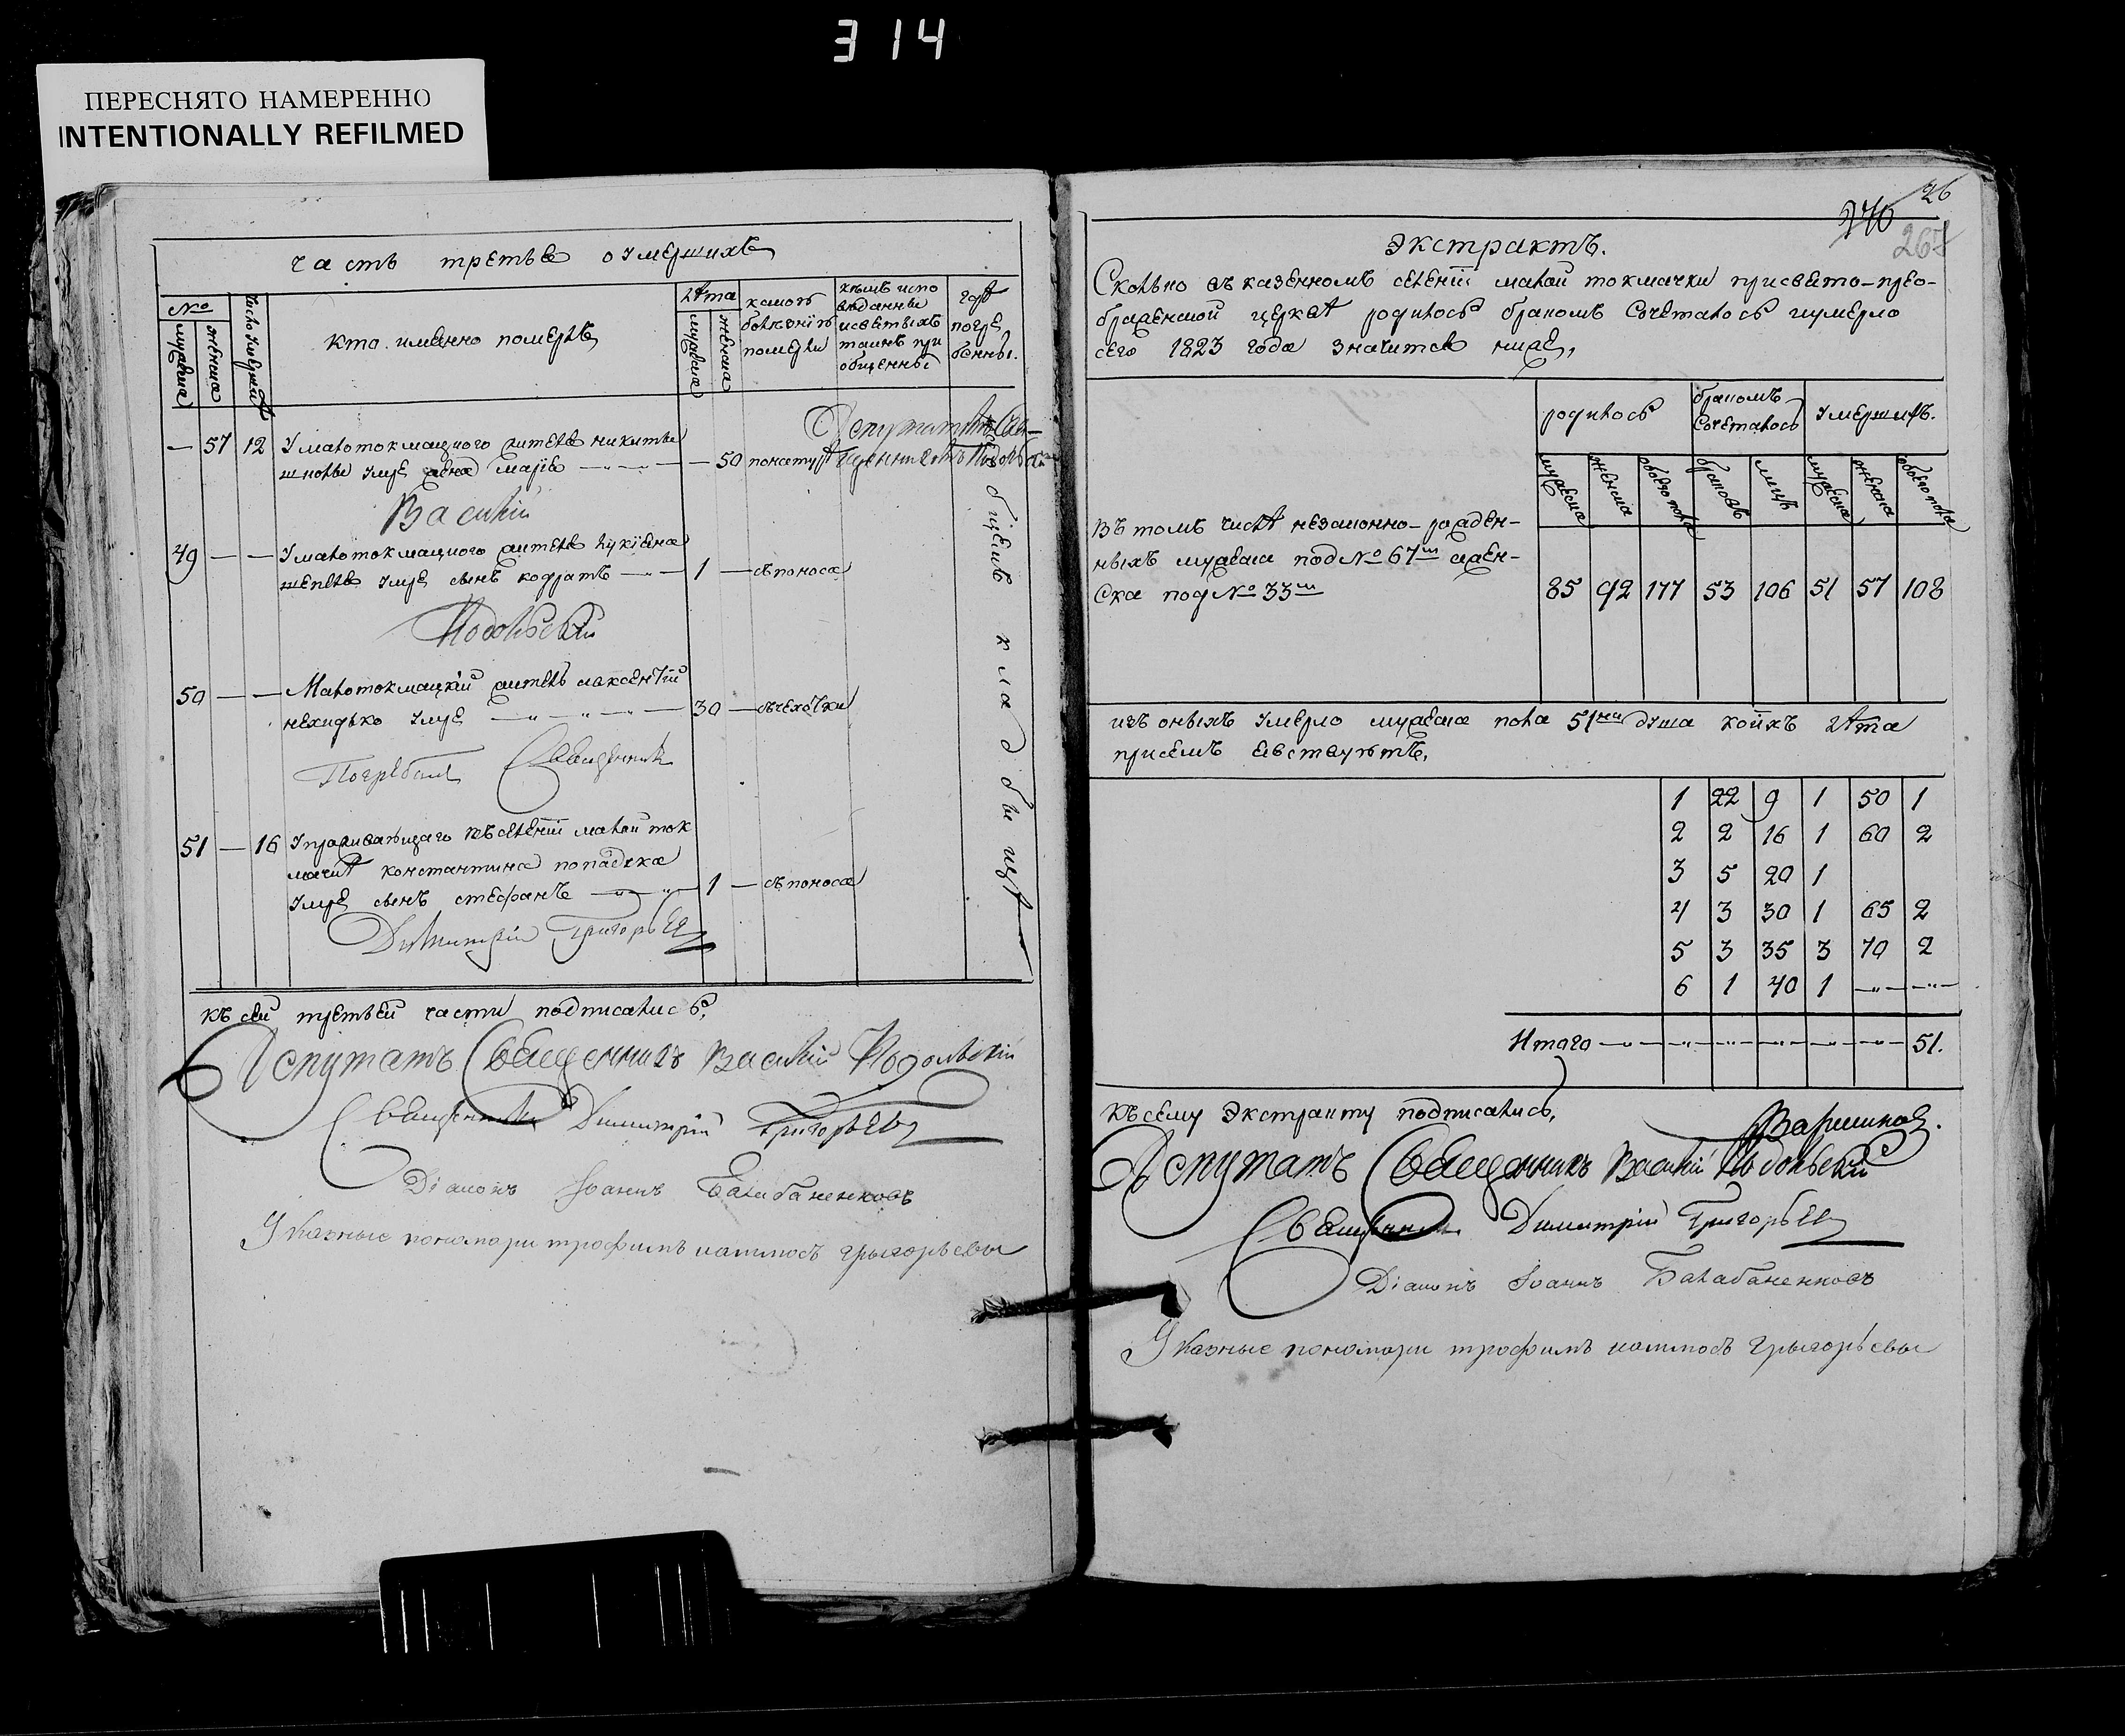 314
ПЕРЕСНЯТО НАМЕРЕННО
INTENTIONALLY REFILMED
часть третья о умершихъ
№
мужеска
женска
число умертвій
кто именно померлъ
лѣта
мужеска
женска
какою болѣзнію померли
кѣмъ исповѣданны и святыхъ таинъ приобщенны
гдѣ погребенны.
— 57 12 У малотокмацкого жителя никиты
шнолы умре жена марія — — 50
Депутатъ Свя-
щенникъ Подоль
Василій
49 — — У малотокмацкого жителя лукіяна
шепеля умре сынъ кодратъ — 1 — съ поноса
Подольскій
50 — — Малотокмацкій житель маѯентій
нехидько умре — 30 —
Погребалъ Священникъ
51 — 16 У проживающаго въ селеніи малой ток
мачкѣ константина попадька
умре сынъ стефанъ — 1 — съ поноса
Димитрій Григорьевъ
общемъ кладбищѣ
къ сей третьей части подписались,
Депутатъ Священникъ Василій Подольскій
Священникъ Димитрій Григорьевъ
Діаконъ Іоаннъ Балабаненковъ
Указные пономари трофимъ Григорьевы
26
270
267
экстрактъ.
Сколько въ казенномъ селеніи малой токмачки при свято-прео-
браженской церквѣ родилось бракомъ сочеталось и умерло
сего 1823 года значится ниже,
родилось
бракомъ сочеталось
умершихъ.
мужеска
женска
обоего пола
браковъ
лицъ
мужеска
женска
обоего пола
Въ томъ числѣ незаконно-рожден-
ныхъ мужеска под № 67ш женс-
ска под № 33ш
85 92 177 53 106 51 57 108
изъ оныхъ умерло мужеска пола 51на душа коихъ лѣта
при семъ явствуютъ,
1 22 9 1 50 1
2 2 16 1 60 2
3 5 20 1
4 3 30 1 65 2
5 3 35 3 70 2
6 1 40 1 — —
Итого — 51.
Къ сему экстракту подписались,
Депутатъ Священникъ Василій Подольскій
Священникъ Димитрій Григорьевъ
Діаконъ Іоаннъ Балабаненковъ
Указные пономари трофимъ Григорьевы